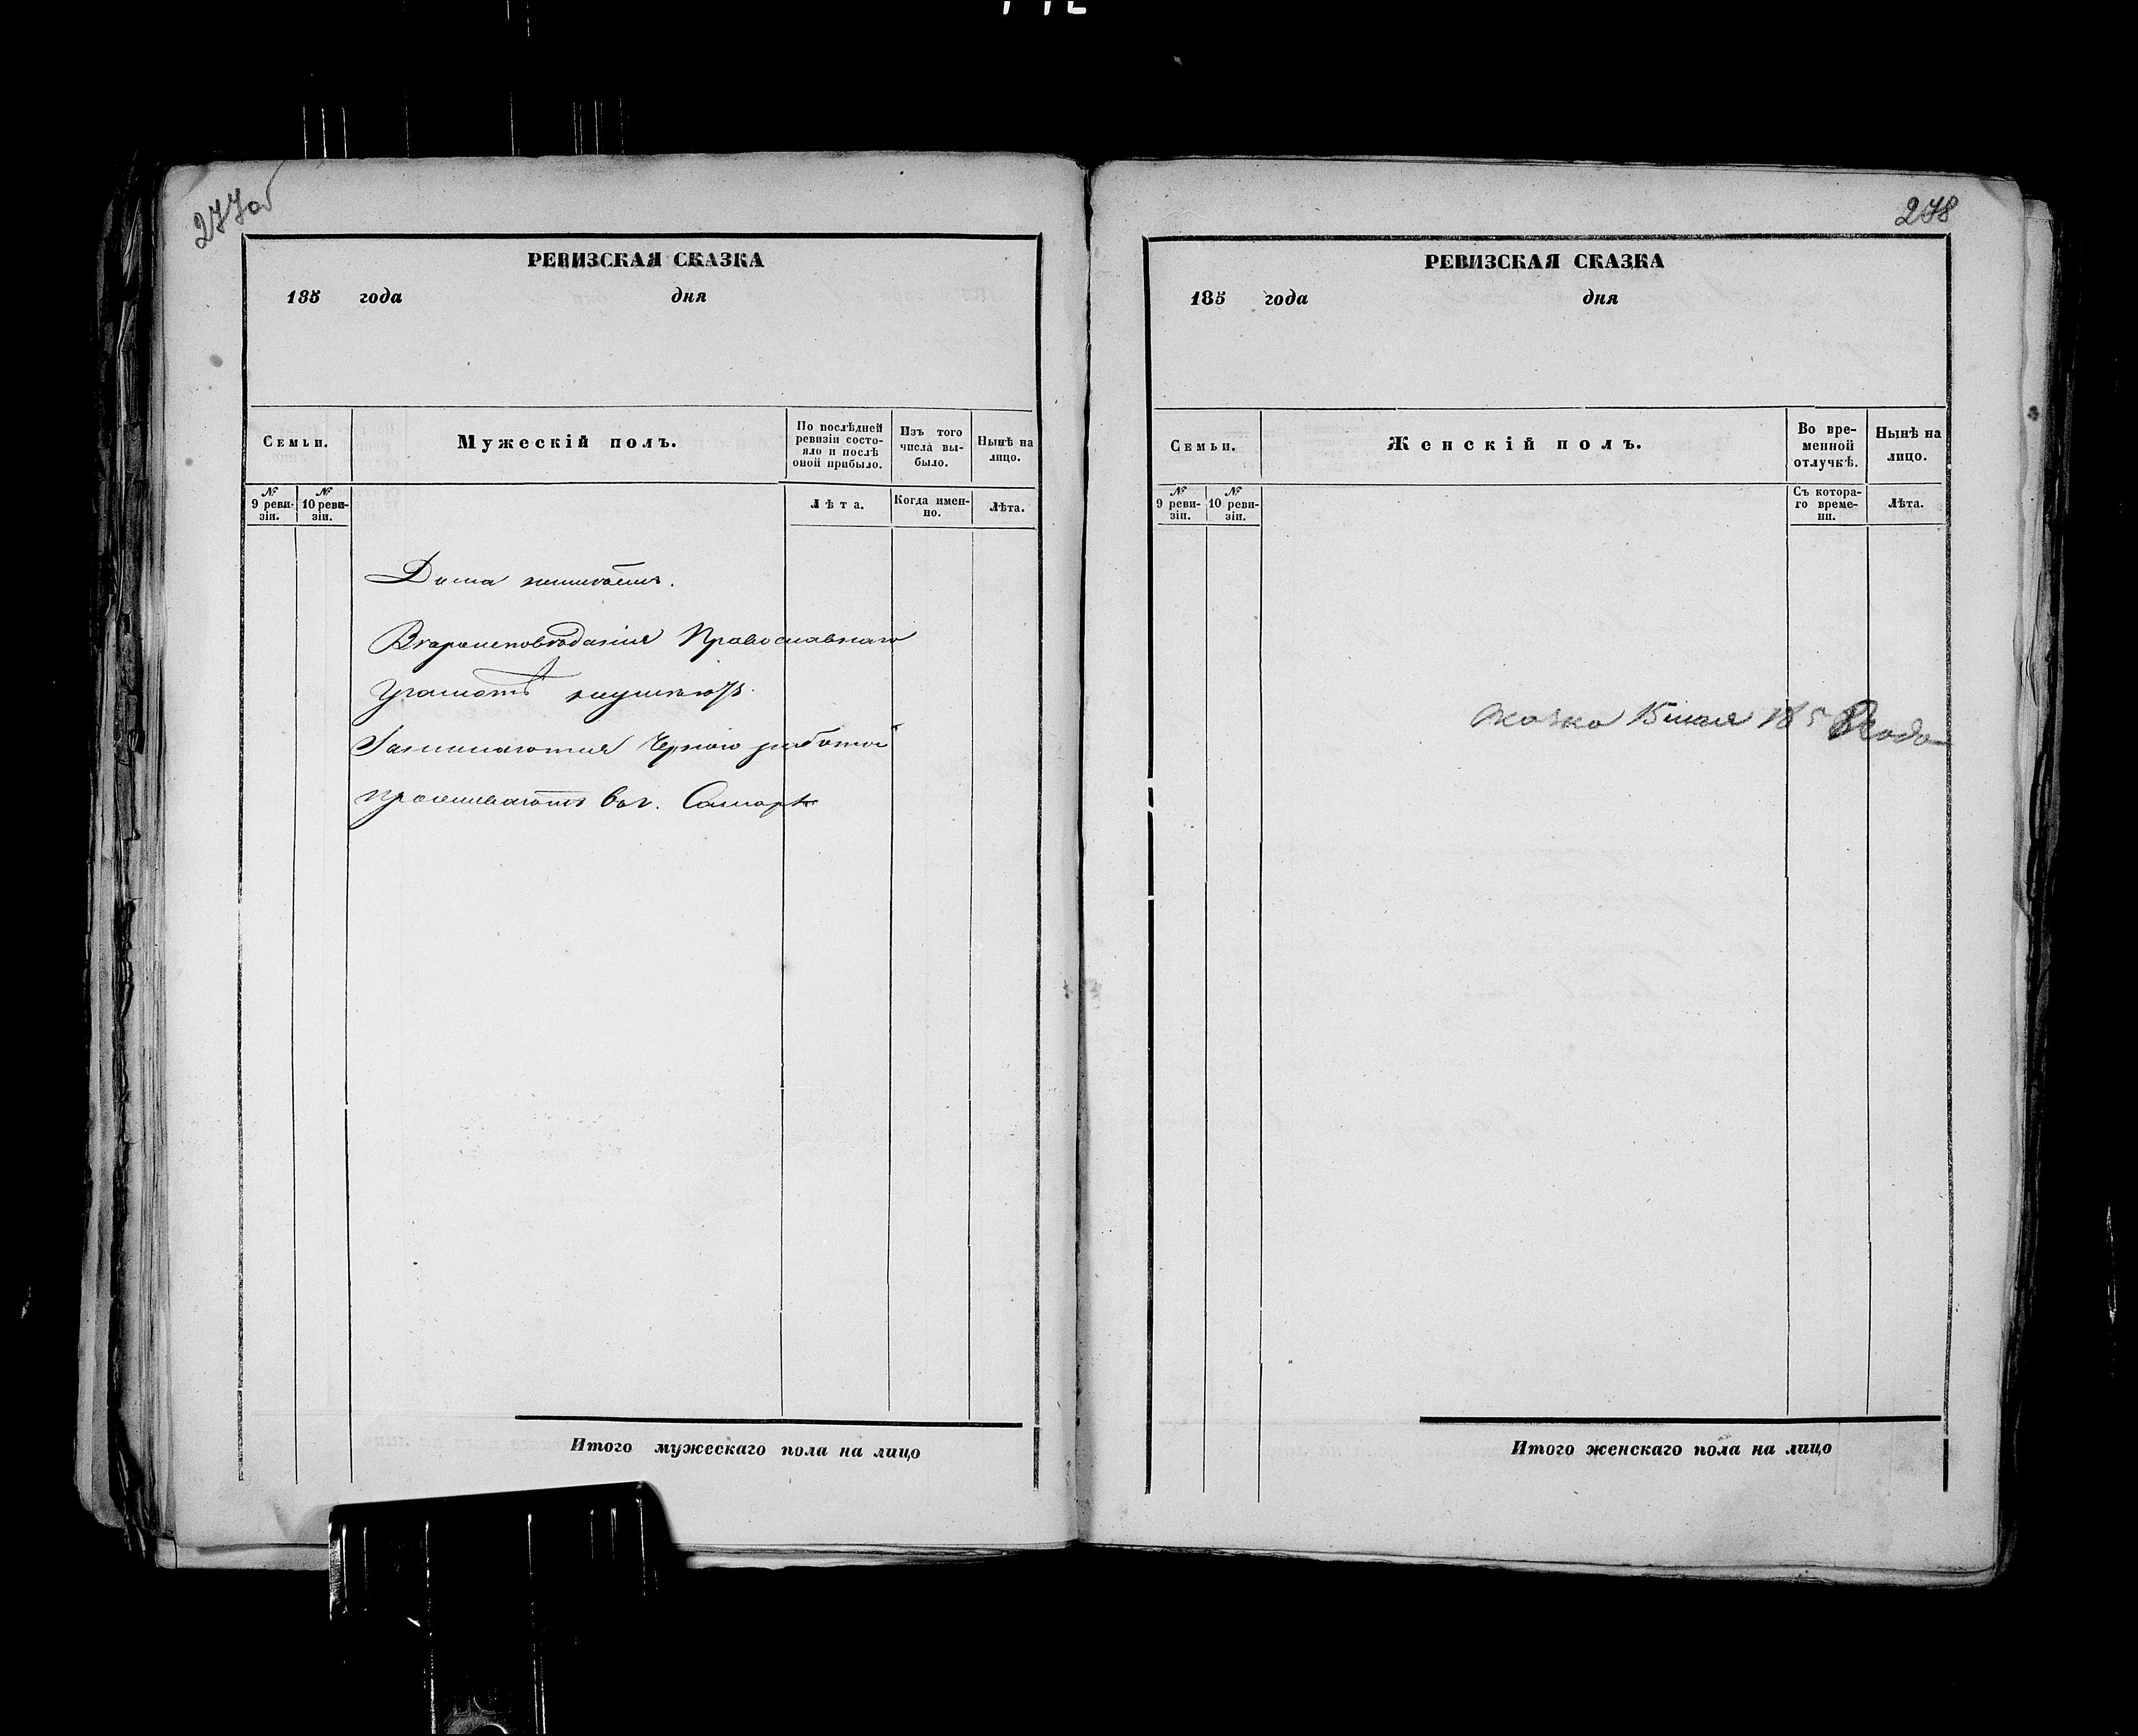 277об
РЕВИЗСКАЯ СКАЗКА
185 года дня
Семьи.
Мужескій полъ.
По послѣдней ревизіи состо-
яло и послѣ оной прибыло.
Изъ того числа вы-
было.
Нынѣ на лицо.
№ 9 реви-
зіи.
№ 10 реви-
зіи.
Лѣта.
Когда имен-
но.
Лѣта.
Дома неимѣетъ.
Вѣроисповѣданія Православнаго
Грамотѣ неумѣютъ.
Занимаются Черною работой
проживаютъ въ г. Самарѣ
Итого мужескаго пола на лицо
278
РЕВИЗСКАЯ СКАЗКА
185 года дня
Семьи.
Женскій полъ.
Во вре-
менной
отлучкѣ.
Нынѣ на
лицо.
№ 9 реви-
зіи.
№ 10 реви-
зіи.
Съ котора-
го време-
ни.
Лѣта.
сказка 15 1858 года
Итого женскаго пола на лицо